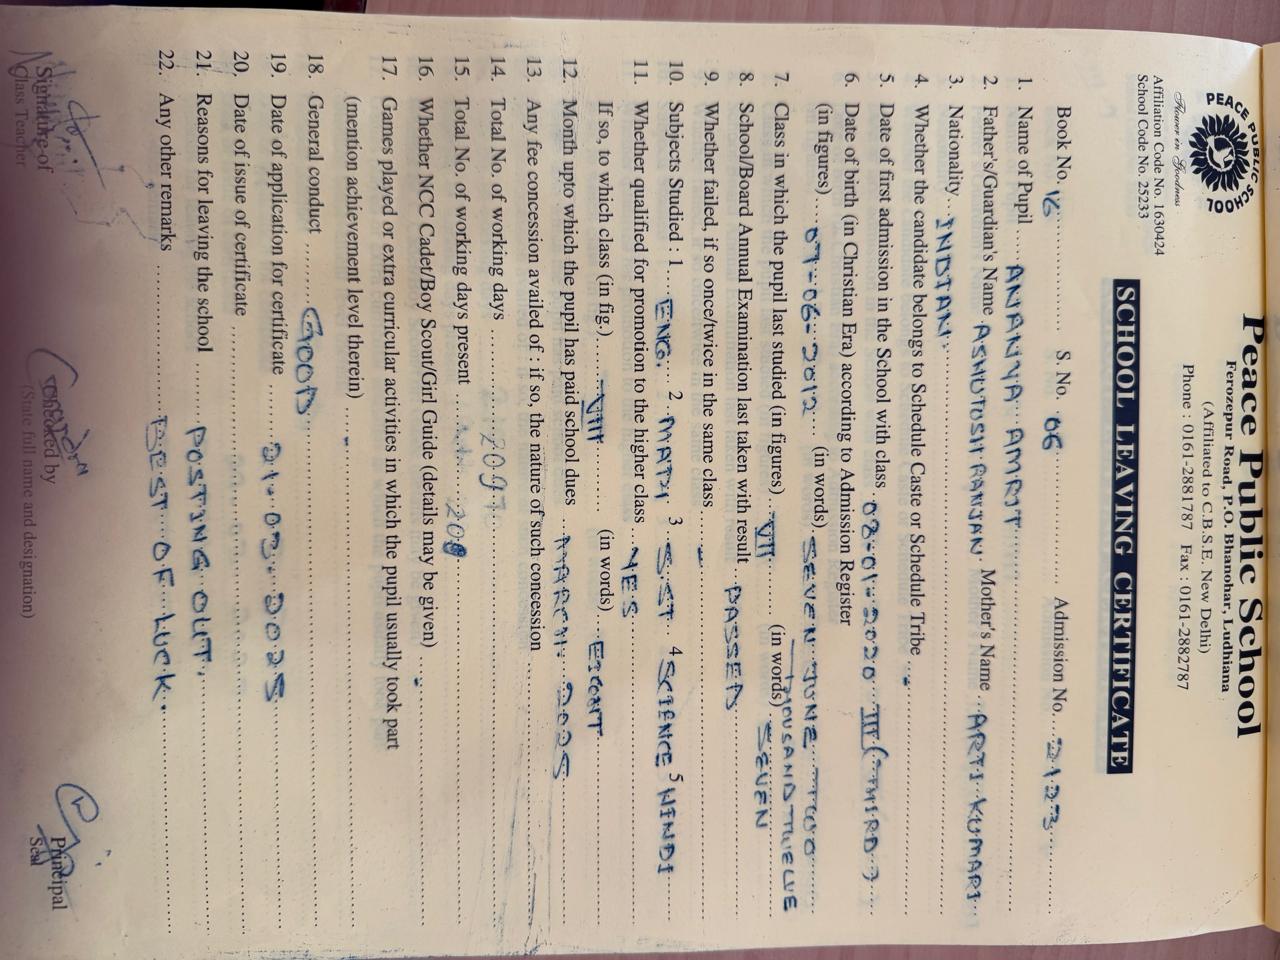 PEACE PUBLIC SCHOOL
Flower in Goodness
Affiliation Code No. 1630424
School Code No. 25233
Peace Public School
Ferozepur Road, P.O. Bhanohar, Ludhiana
(Affiliated to C.B.S.E. New Delhi)
Phone : 0161-2881787 Fax : 0161-2882787
SCHOOL LEAVING CERTIFICATE
Book No. 16 S No. 06 Admission No. 2123
1. Name of Pupil ANANYA AMRIT
2. Father's/Guardian's Name ASHUTOSH RANJAN Mother's Name ARTI KUMARI
3. Nationality INDIAN
4. Whether the candidate belongs to Schedule Caste or Schedule Tribe -
5. Date of first admission in the School with class 08-01-2020 III (THIRD)
6. Date of birth (in Christian Era) according to Admission Register
(in figures) 07-06-2012 (in words) SEVEN JUNE TWO
THOUSAND TWELVE
7. Class in which the pupil last studied (in figures) VII (in words) SEVEN
8. School/Board Annual Examination last taken with result PASSED
9. Whether failed, if so once/twice in the same class -
10. Subjects Studied : 1 ENG. 2 MATH 3 S.ST 4 SCIENCE 5 HINDI
11. Whether qualified for promotion to the higher class YES
If so, to which class (in fig.) VIII (in words) EIGHT
12. Month upto which the pupil has paid school dues MARCH 2025
13. Any fee concession availed of : if so, the nature of such concession
14. Total No. of working days 209
15. Total No. of working days present
16. Whether NCC Cadet/Boy Scout/Girl Guide (details may be given) -
17. Games played or extra curricular activities in which the pupil usually took part
(mention achievement level therein) -
18. General conduct GOOD
19. Date of application for certificate 21.03.2025
20. Date of issue of certificate
21. Reasons for leaving the school POSTING OUT
22. Any other remarks BEST OF LUCK
Signature of
Class Teacher
Checked by
(State full name and designation)
Principal
Seal